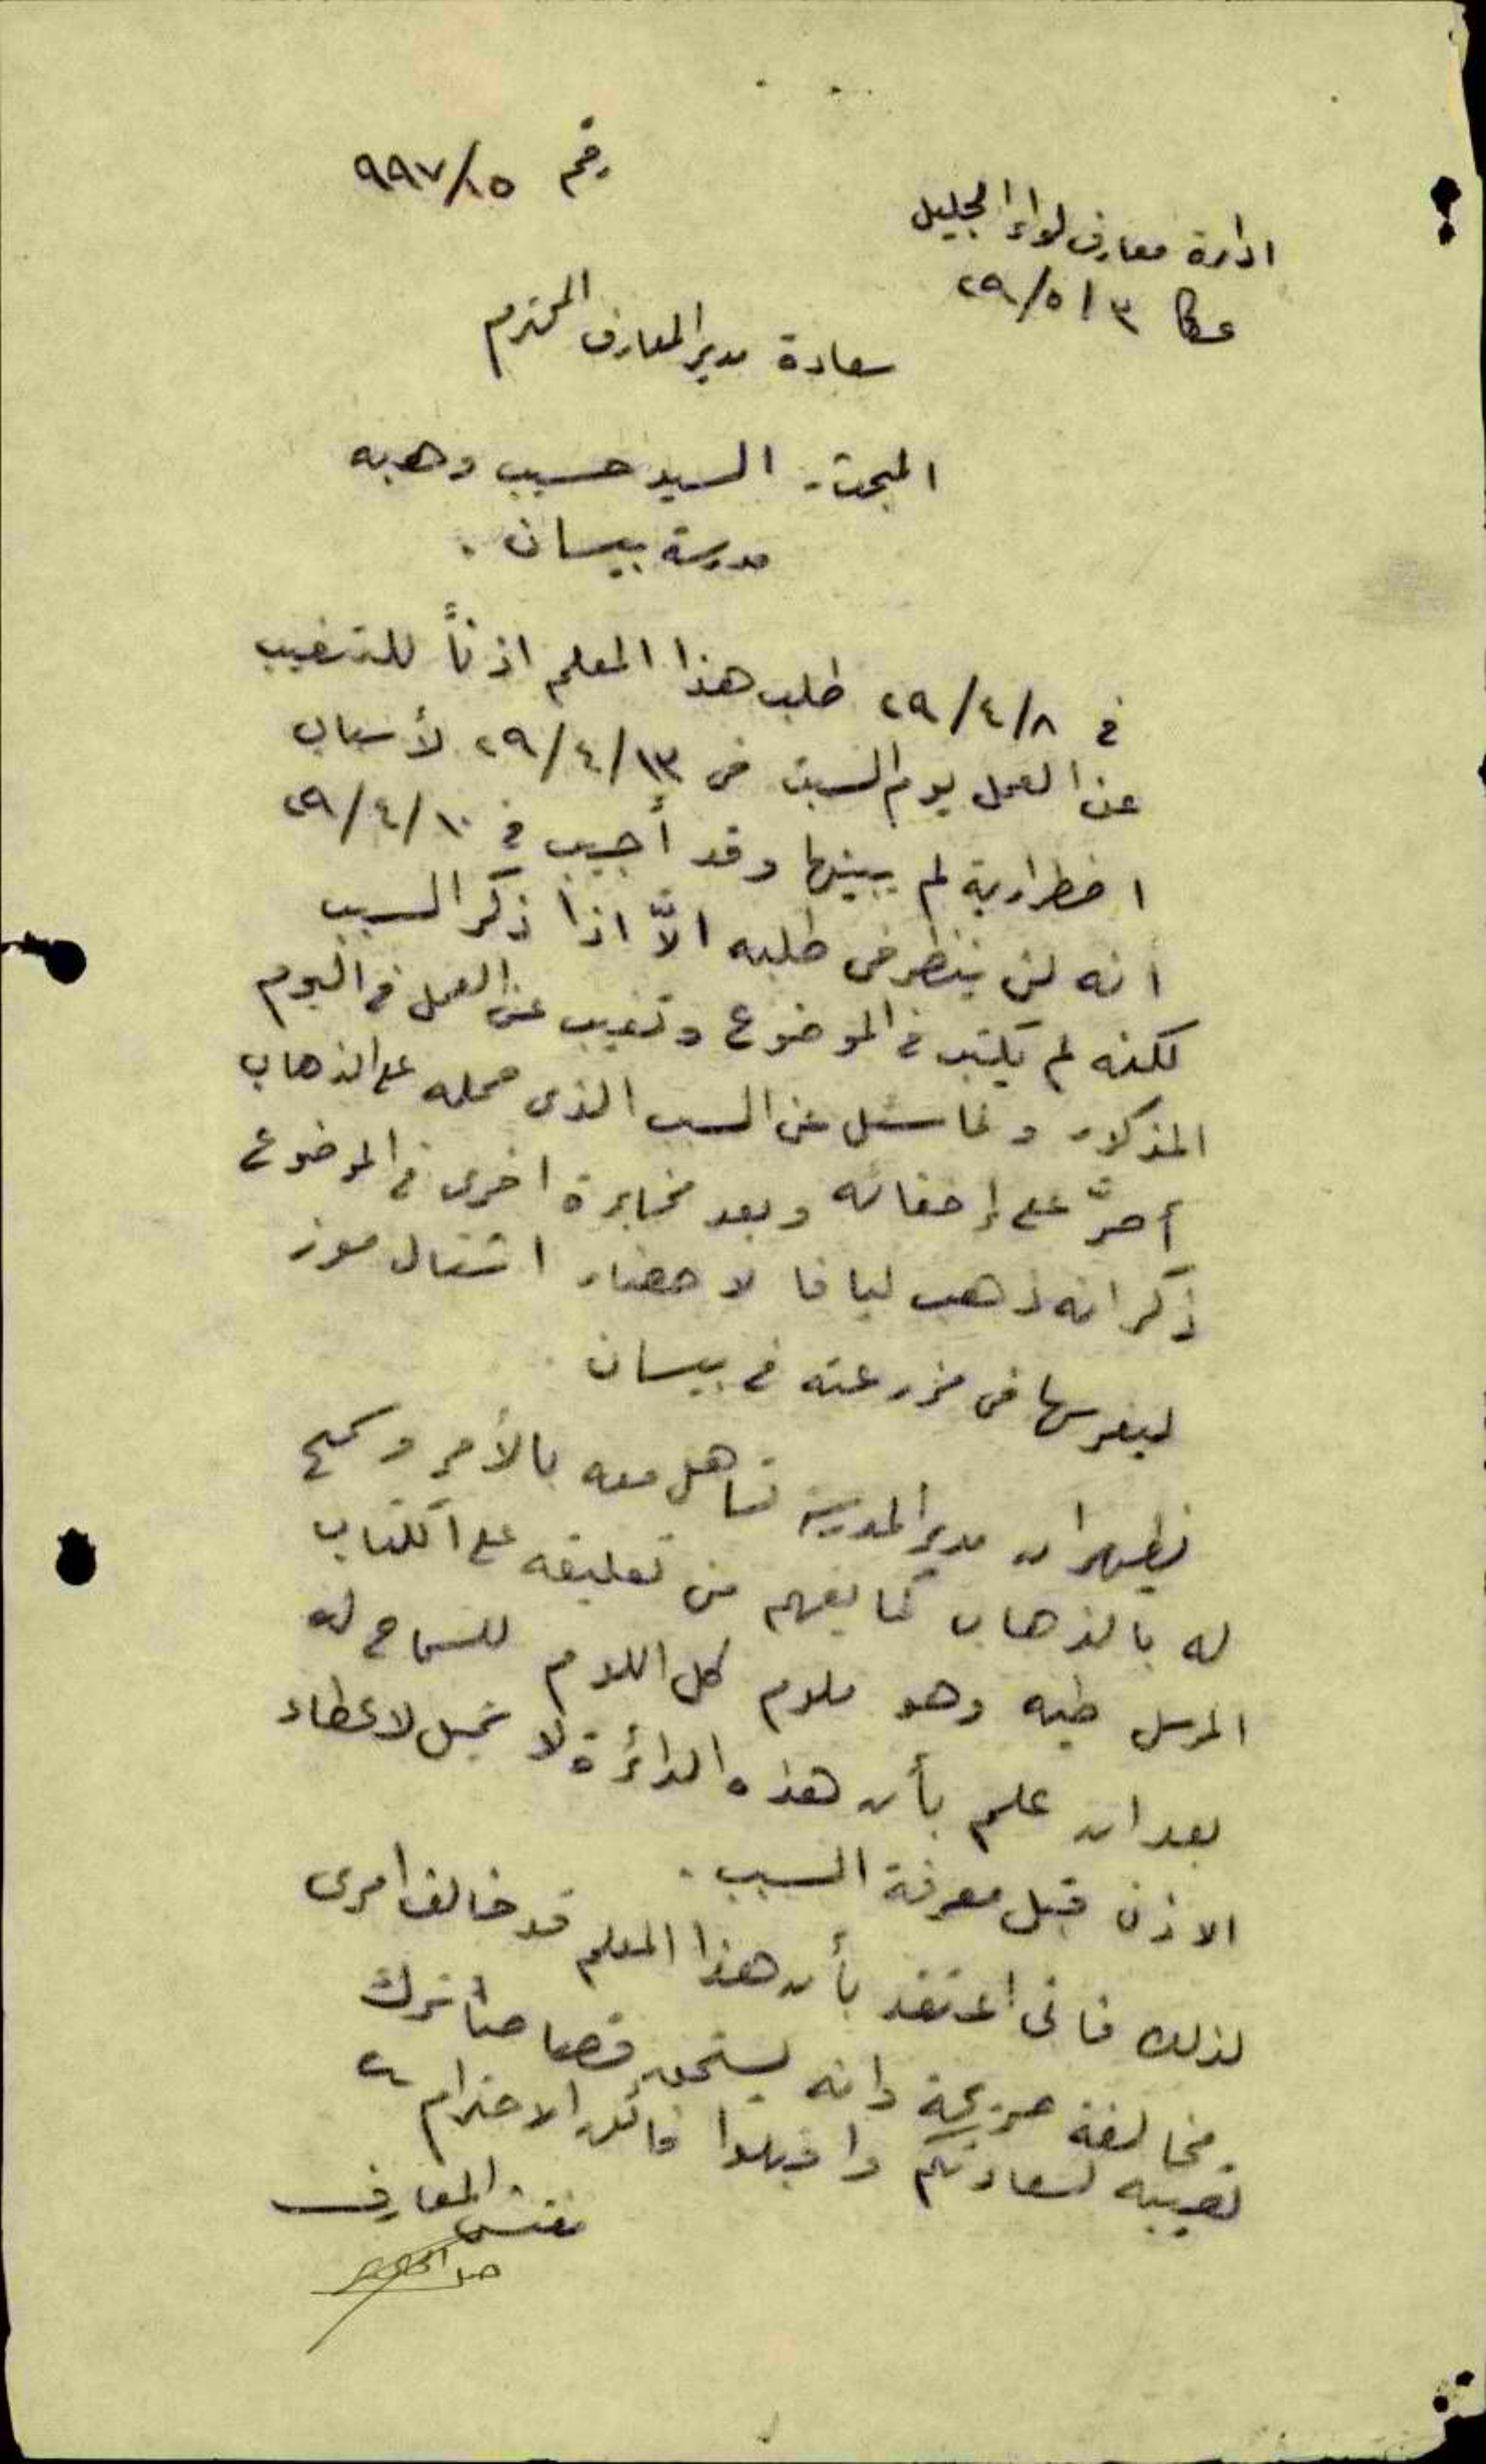 رقم ٩٩٧/١٥
ادارة معارف لواء الجليل
عكا ٣/٥/٢٩
سعادة مدير المعارف المحترم
المبحث :- السيد حسيب وهبه
مدرسة بيسان .
في ٢٩/٤/٨ طلب هذا المعلم اذناً للتغيب
عن العمل يوم السبت في ٢٩/٤/١٣ لأسباب
اضطرارية لم يبينها وقد أجيب في ٢٩/٤/١٠
أنه لن ينظر في طلبه الاَّ اذا ذكر السبب
لكنه لم يكتب في الموضوع وتغيب عن العمل في اليوم
المذكور ولما سئل عن السبب الذي حمله على الذهاب
أصرَّ على إخفائه وبعد مخابرة اخرى في الموضوع
ذكر انه ذهب ليافا لاحضار اشتال موز
ليغرسها في مزرعته في بيسان .
يظهر ان مدير المدرسة تساهل معه بالأمر وسمح
له بالذهاب كما يفهم من تعليقه على الكتاب
المرسل طيه وهو ملوم كل اللوم للسماح له
بعد ان علم بأن هذه الدائرة لا تميل لاعطاء
الاذن قبل معرفة السبب .
لذلك فاني اعتقد بأن هذا المعلم قد خالف امري
مخالفة صريحة وانه يستحق قصاصاً نترك
تعيينه لسعادتكم واقبلوا فائق الاحترام
مفتش المعارف